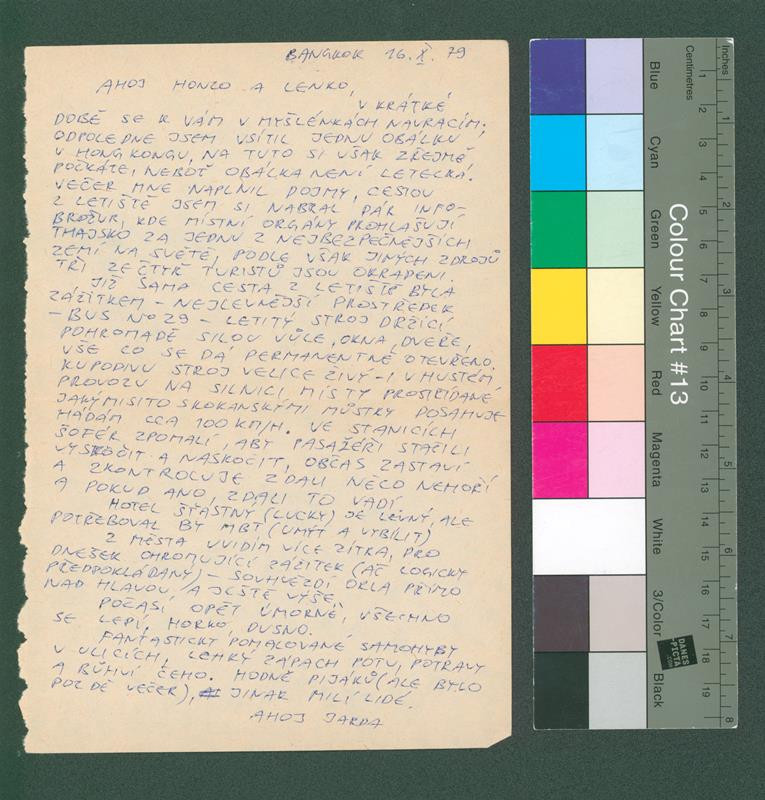 BANGKOK 16.X.79
AHOJ HONZO A LENKO,
V KRÁTKÉ
DOBĚ SE K VÁM V MYŠLÉNKÁCH NAVRACÍM;
ODPOLEDNE JSEM VSÍTIL JEDNU OBÁLKU
V HONG KONGU, NA TUTO SI VŠAK ZŘEJMĚ
POČKÁTE, NEBOŤ OBÁLKA NENÍ LETECKÁ.
VEČER MNE NAPLNIL DOJMY, CESTOU
Z LETIŠTĚ JSEM SI NABRAL PÁR INFO-
BROŽUR, KDE MÍSTNÍ ORGÁNY PROHLAŠUJÍ
THAJSKO ZA JEDNU Z NEJBEZPEČNĚJŠÍCH
ZEMÍ NA SVĚTĚ, PODLE VŠAK JINÝCH ZDROJŮ
TŘI ZE ČTYŘ TURISTŮ JSOU OKRADENI.
JIŽ SAMA CESTA Z LETIŠTĚ BYLA
ZÁŽITKEM – NEJLEVNĚJŠÍ PROSTŘEDEK
– BUS No 29 – LETITÝ STROJ DRŽÍCÍ
POHROMADĚ SILOU VŮLE, OKNA, DVEŘE,
VŠE CO SE DÁ PERMANENTNĚ OTEVŘENO.
KUPODIVU STROJ VELICE ŽIVÝ – I V HUSTÉM
PROVOZU NA SILNICI, MÍSTY PROSTŘÍDANÉ
JAKÝMISITO SKOKANSKÝMI MŮSTKY DOSAHUJE
HÁDÁM CCA 100 KM/H. VE STANICÍCH
ŠOFÉR ZPOMALÍ, ABY PASAŽÉŘI STAČILI
VYSKOČIT A NASKOČIT, OBČAS ZASTAVÍ
A ZKONTROLUJE ZDALI NĚCO NEHOŘÍ
A POKUD ANO, ZDALI TO VADÍ
HOTEL ŠŤASTNÝ (LUCKY) JE LEVNÝ, ALE
POTŘEBOVAL BY MBT (UMÝT A VYBÍLIT)
Z MĚSTA UVIDÍM VÍCE ZÍTRA, PRO
DNEŠEK OHROMUJÍCÍ ZÁŽITEK (AČ LOGICKY
PŘEDPOKLÁDANÝ) – SOUHVĚZDÍ ORLA PŘÍMO
NAD HLAVOU A JEŠTĚ VÝŠE.
POČASÍ OPĚT ÚMORNÉ, VŠECHNO
SE LEPÍ, HORKO, DUSNO.
FANTASTICKY POMALOVANÉ SAMOHYBY
V ULICÍCH, LEHKÝ ZÁPACH POTU, POTRAVY
A BŮHVÍ ČEHO. HODNĚ PIJÁKŮ (ALE BYLO
POZDĚ VEČER), JINAK MILÍ LIDÉ.
AHOJ JARDA
Inches
Centimetres
1 2 3 4 5 6 7 8
1 2 3 4 5 6 7 8 9 10 11 12 13 14 15 16 17 18 19
Colour Chart #13
Blue
Cyan
Green
Yellow
Red
Magenta
White
3/Color
Black
DANES
-PICTA
.COM